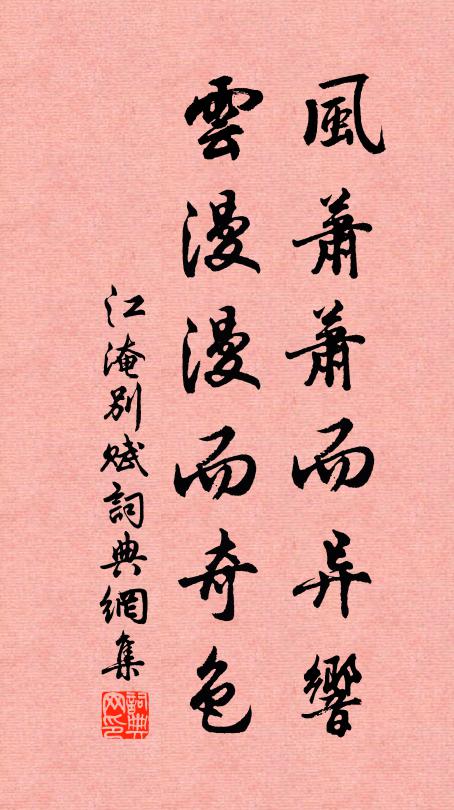 風蕭蕭而异響
雲漫漫而奇色
江淹別賦詞典網集
詞典网印